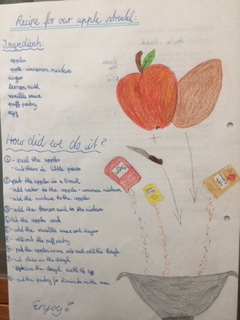 Recipe for our apple strudel.
Ingredients:
apples
apple-cinnamon mixture
sugar
lemon acid
vanilla sauce
puff pastry
egg
How did we do it?
① - peel the apples
- cut them in little pieces
② - put the apples in a bowl
- add water to the apple-cinnamon mixture
- add the mixture to the apples
③ - add the lemon acid to the mixture
④ - let the apples rest
- add the vanilla sauce and sugar
- roll out the puff pastry
- put the apples on one side and roll the dough
- cut slices in the dough
- brush the dough with the egg
- put the pastry for minutes in the oven
Enjoy!